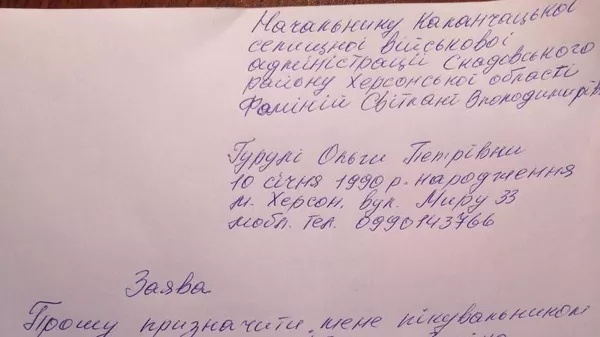 Начальнику Каланчацької
селищної військової
адміністрації Скадовського
району Херсонської області
Фаміній Світлані Володимирів
Гурулі Ольги Петрівни
10 січня 1990 р. народження
м. Херсон, вул. Миру 33
мобл. тел. 0990143766
Заява
Прошу призначити мене піклувальником